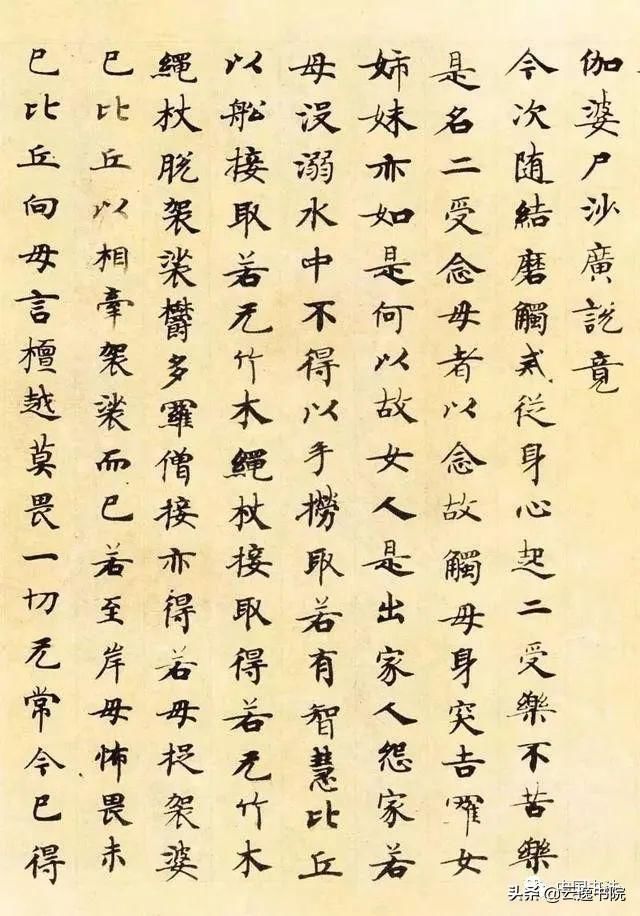 伽婆尸沙廣説竟
今次随結磨觸戒從身心起二受樂不苦樂
是名二受念母者以念故觸母身突吉羅女
姊妹亦如是何以故女人是出家人怨家若
母没溺水中不得以手撈取若有智慧比丘
以舩接取若无竹木繩杖接取得若无竹木
繩杖脱袈裟欝多羅僧接亦得若母捉袈婆
已比丘以相牽袈裟而已若至岸母怖畏未
已比丘向母言檀越莫畏一切无常今已得
头条 @云逸书院